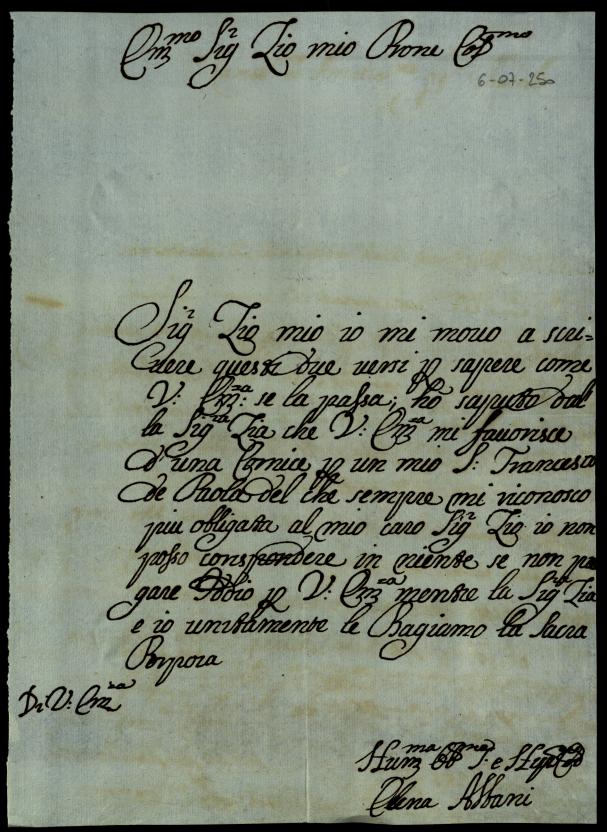 Em.mo Sig.r Zio mio Prone Co𝑙.mo
6-07-250
Sig.r Zio mio io mi movo a scri=
vere questi due versi p sapere come
V: Em:za se la passa; ho saputo dal
la Sig.ra Zia che V: Em.za mi favorisce
d'una Cornice p un mio S: Francesco
de Paola del che sempre mi riconosco
piu obligata al mio caro Sig.r Zio io non
posso corispondere in niente se non pre
gare Iddio p V: Em.za mentre la Sig.ra Zia
e io unitamente le Bagiamo la Sacra
Porpora
Di V: Em.za
Hum.ma S. e
Elena Albani